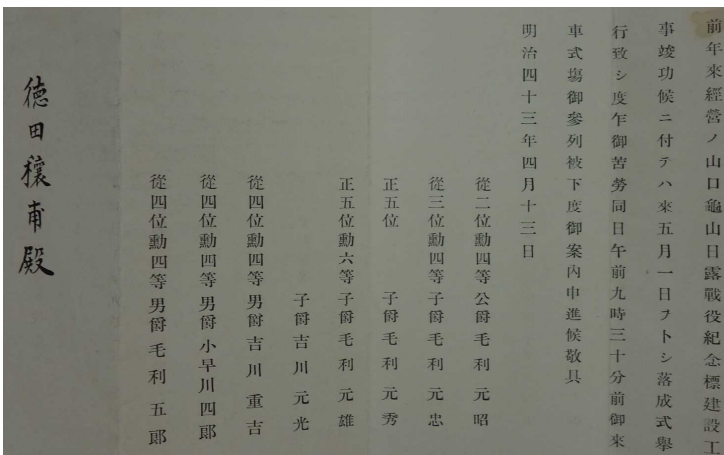 前年來經營ノ山口龜山日露戰役紀念標建設工
事竣功候ニ付テハ來五月一日ヲトシ落成式擧
行致シ度乍御苦勞同日午前九時三十分前御來
車式塲御參列被下度御案內申進候敬具
明治四十三年四月十三日
從二位勳四等 公爵毛利元昭
從三位勳四等 子爵毛利元忠
正五位 子爵毛利元秀
正五位勳六等 子爵毛利元雄
子爵吉川元光
從四位勳四等 男爵吉川重吉
從四位勳四等 男爵小早川四郞
從四位勳四等 男爵毛利五郞
德田穰甫殿